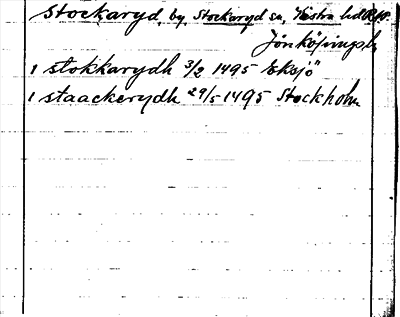 Stockaryd, by, Stockaryd sn, Västra hd
Jönköpings l.
i stokkarydh 3/2 1495 Eksjö
i staackerydh 29/5 1495 Stockholm